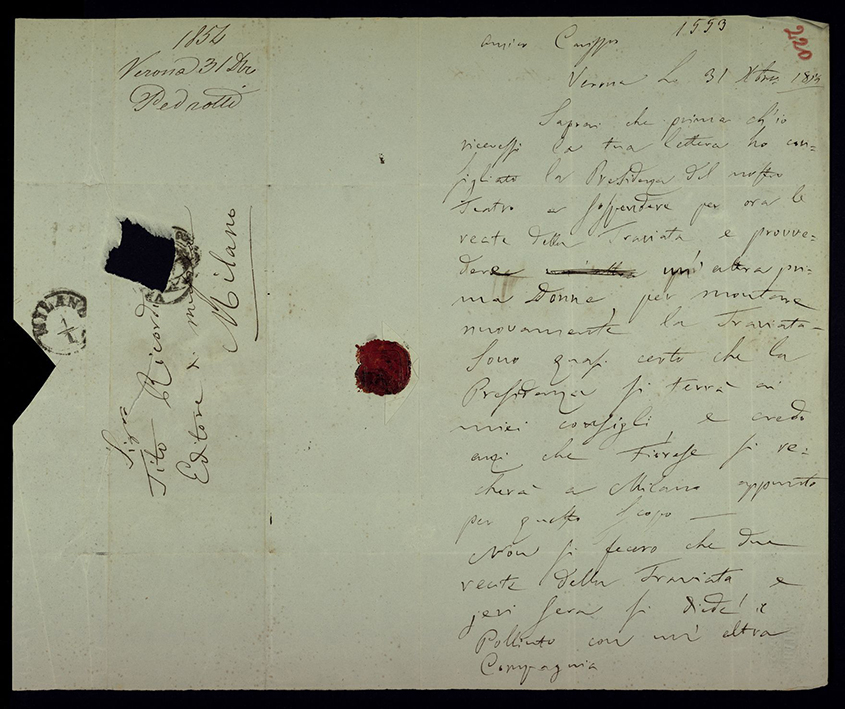 1854
Verona 31 Dbr
Pedrotti
MILANO
1/1
Sigr
Tito Ricordi
Editore di
Milano
1553
220
amico Cariss
Verona Li 31 Xbre
Saprai che prima ch'io
ricevessi la tua lettera ho con=
sigliato la Presidenza del nostro
Teatro a sospendere per ora le
recite della Traviata e provve=
dere un'altra pri=
ma Donna, per montare
nuovamente la Traviata-
Sono quasi certo che la
Presidenza si terrà ai
miei consigli, e credo
anzi che Fiorase si re=
cherà a Milano appunto
per questo scopo —
Non si fecero che due
recite della Traviata e
jeri sera si diede il
Polliuto con un'altra
Compagnia